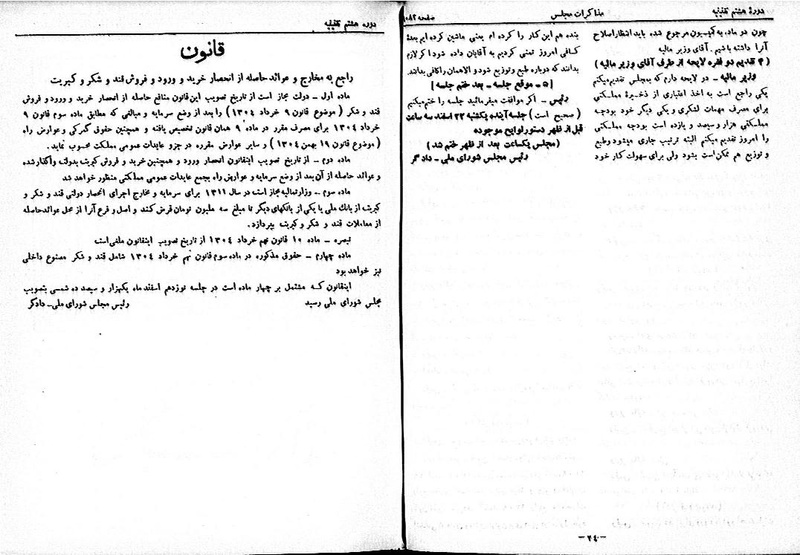 دورهٔ هشتم تقنینیه
مذاکرات مجلس
صفحه ۱۰۸۲
چون دو ماده به کمیسیون مرجوع شده باید انتظار اصلاح
آنرا داشته باشیم. آقای وزیر مالیه
(۴ تقدیم دو فقره لایحه از طرف آقای وزیر مالیه)
وزیر مالیه - دو لایحه دارم که بمجلس تقدیم میکنم
یکی راجع است به اخذ اعتباری از ذخیرهٔ مملکتی
برای مصرف مهمات لشگری و یکی دیگر خود بودجه
مملکتی هزار و سیصد و یازده است بودجه مملکتی
را امروز تقدیم میکنم البته ترتیب جاری میشود و طبع
و توزیع هم ممکن است بشود ولی برای سهولت کار خود
بنده هم این کار را کرده ام یعنی ماشین کرده ایم بعدهٔ
کافی امروز تمنی کردیم به آقایان داده شود اگر لازم
بدانند که دوباره طبع و توزیع شود و الا همان را کافی بدانند.
(۵ - موقع جلسه - بعد ختم جلسه)
رئیس - اگر موافقت میفرمائید جلسه را ختم میکنیم
(صحیح است) جلسه آینده یکشنبه ۲۳ اسفند سه ساعت
قبل از ظهر دستور لوایح موجوده
(مجلس یکساعت بعد از ظهر ختم شد)
رئیس مجلس شورای ملی - دادگر
-۲۴۰-
دوره هشتم تقنینیه
قانون
راجع به مخارج و عوائد حاصله از انحصار خرید و ورود و فروش قند و شکر و کبریت
ماده اول - دولت مجاز است از تاریخ تصویب این قانون منافع حاصله از انحصار خرید و ورود و فروش
قند و شکر (موضوع قانون ۹ خرداد ۱۳۰۴) را بعد از وضع سرمایه و مبالغی که مطابق ماده سوم قانون ۹
خرداد ۱۳۰۴ برای مصرف مقرر در ماده ۹ همان قانون تخصیص یافته و همچنین حقوق گمرکی و عوارض راه
(موضوع قانون ۱۹ بهمن ۱۳۰۴) و سایر عوارض مقرره در جزو عایدات عمومی مملکت محسوب نماید.
ماده دوم - از تاریخ تصویب اینقانون انحصار ورود و همچنین خرید و فروش کبریت بدولت واگذار شده
و عوائد حاصله از آن بعد از وضع سرمایه و عوارض راه بجمع عایدات عمومی مملکتی منظور خواهد شد
ماده سوم - وزارت مالیه مجاز است در سال ۱۳۱۱ برای سرمایه و مخارج اجرای انحصار دولتی قند و شکر و
کبریت از بانک ملی یا یکی از بانکهای دیگر تا مبلغ سه ملیون تومان قرض کنند و اصل و فرع آنرا از محل عوائد حاصله
از معاملات قند و شکر و کبریت بپردازد.
تبصره - ماده ۱۰ قانون نهم خرداد ۱۳۰۴ از تاریخ تصویب اینقانون ملغی است
ماده چهارم - حقوق مذکوره در ماده سوم قانون نهم خرداد ۱۳۰۴ شامل قند و شکر مصنوع داخلی
نیز خواهد بود
اینقانون که مشتمل بر چهار ماده است در جلسه نوزدهم اسفند ماه یکهزار و سیصد و ده شمسی بتصویب
مجلس شورای ملی رسید
رئیس مجلس شورای ملی - دادگر